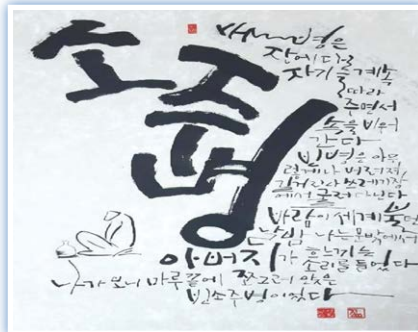 소주병
술병은
잔에다
자기를 계속
따라
주면서
속을 비워
간다
빈 병은 아무
렇게나 버려져
길거리나 쓰레기장
에서 굴러다닌다
바람이 세게 불던
밤 나는 문밖에서
아버지가 흐느끼는
소리를 들었다
나가 보니 마루 끝에 쪼그려 앉은
빈 소주병이었다